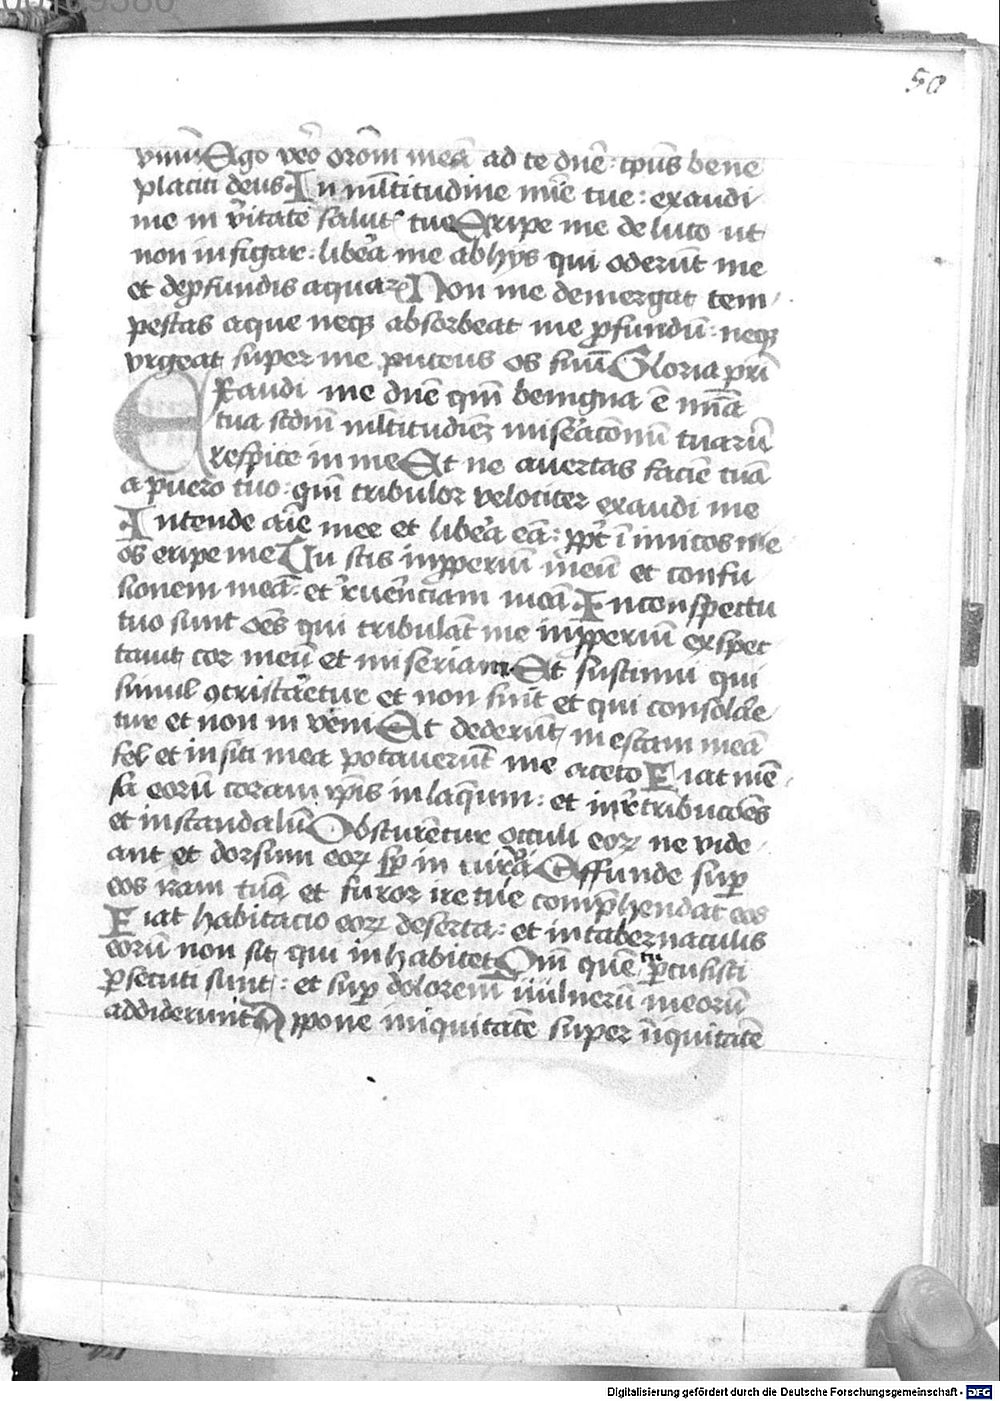 50
vinū Ego vero orōm meā ad te dnē : tpūs bene
placiti deus In mltitudine mie tue : exaudi
me in vitate salut tue Eripe me de luto ut
non infigar : libea me ab hys qui oderūt me
et de pfundis aquaꝝ Non me demergat tem
pestas aque neqꝫ absorbeat me pfundū : neqꝫ
vrgeat super me puteus os suū Gloria pri
Exaudi me dnē qm̄ benigna ē mīa
tua scdm mltitudiēꝫ miseacōnū tuarū
respice in me Et ne auertas faciē tuā
a puero tuo : qm̄ tribulor velociter exaudi me
Intende aīe mee et libea eā : ppt īimicos me
os eripe me Tu scis inpperiū meū et confu
sionem meā : et reuēnciam meā In conspectu
tuo sunt oēs qui tribulāt me inpperiū exspec
tauit cor meū et miseriam Et sustinui qui
simul ꝯtristaetur et non fuit et qui consolae
tur et non inveni Et dederūt in escam meā
fel et in siti mea potauerūt me aceto Fiat mē
sa eorū coram ipīs in laq̄um : et in rtribucōēs
et in scandalū Obscurētur occuli eoꝝ ne vide
ant et dorsum eoꝝ sp incurua Effunde sup
eos iram tuā et furor ire tue comphendat eos
Fiat habitacio eoꝝ deserta : et in tabernaculis
eorū non sit qui inhabitet Qm̄ quē tu pcusisti
psecuti sunt : et sup dolorem uulnerū meorū
addiderunt Appone iniquitatē super iniquitatē
Digitalisierung gefördert durch die Deutsche Forschungsgemeinschaft - DFG